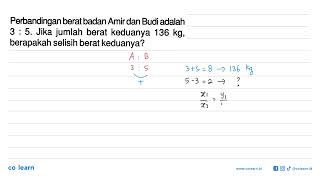 Perbandingan berat badan Amir dan Budi adalah
3 : 5. Jika jumlah berat keduanya 136 kg,
berapakah selisih berat keduanya?
A : B
3 : 5
+
3+5 = 8 → 136 kg
5-3 = 2 → ?
x₁/x₂ = y₁/
co learn
www.colearn.id